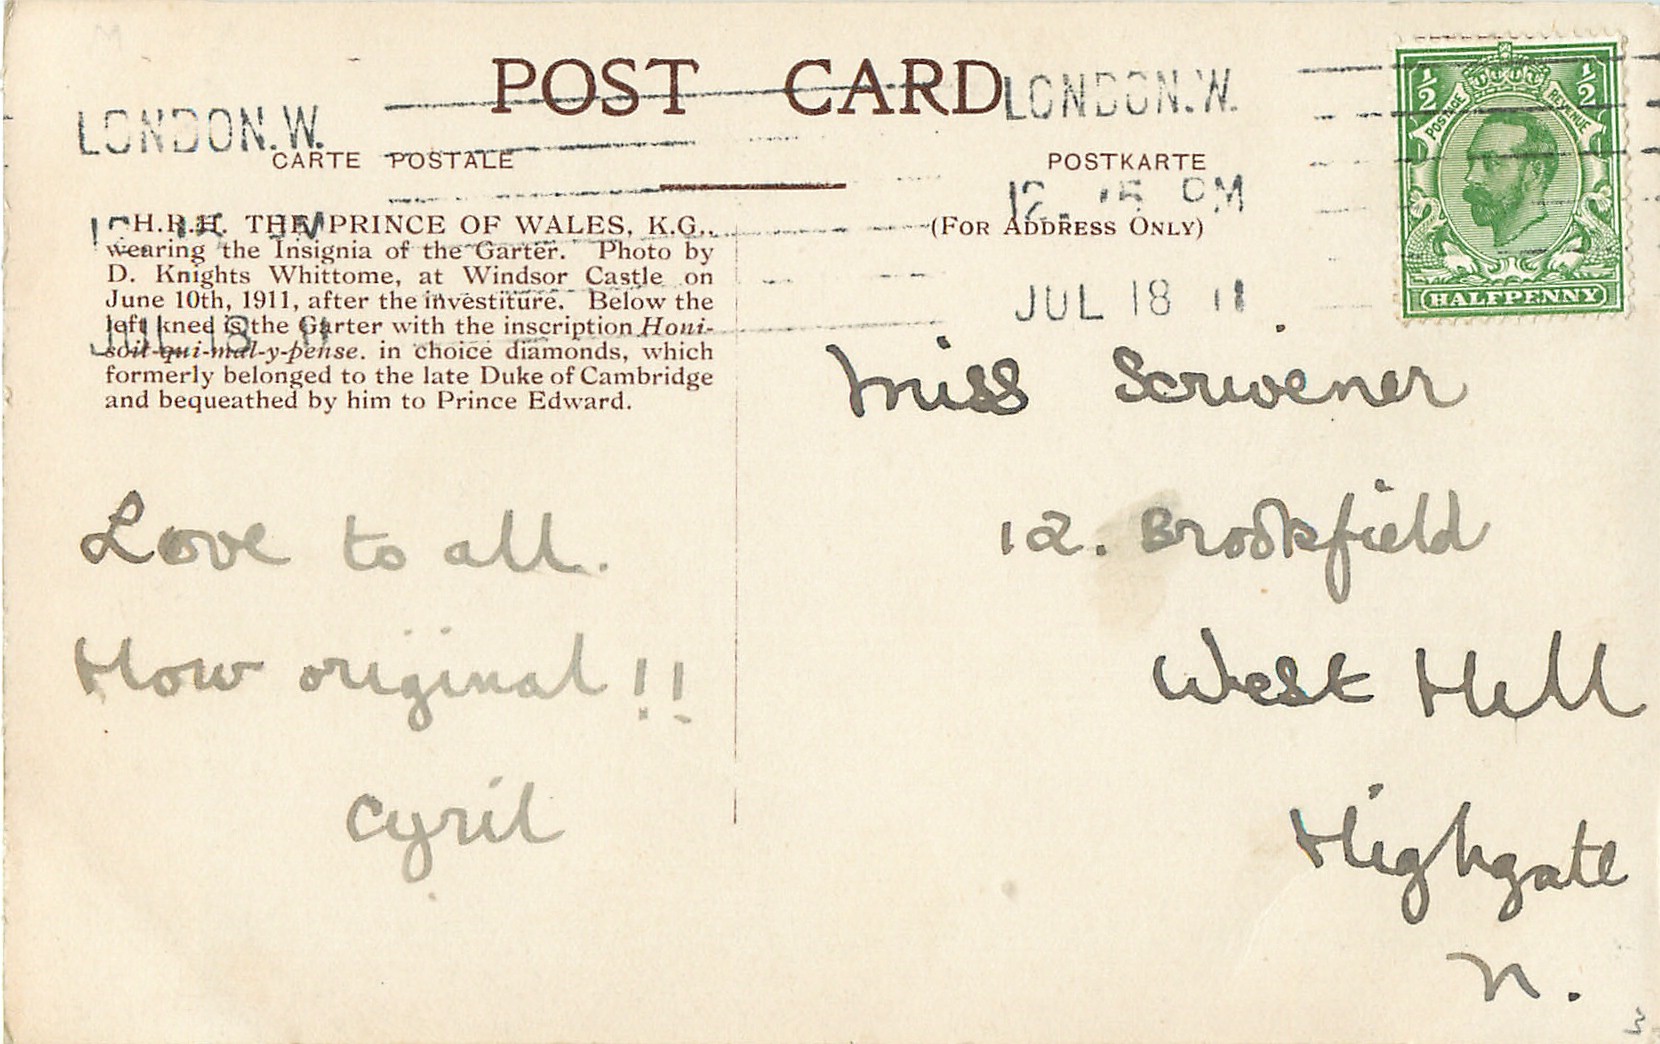 POST CARD
CARTE POSTALE
POSTKARTE
LONDON.W.
LONDON.W.
PM
JUL 18 11
JUL 18 11
½ ½
POSTAGE REVENUE
HALFPENNY
H.R.H. THE PRINCE OF WALES, K.G.,
wearing the Insignia of the Garter. Photo by
D. Knights Whittome, at Windsor Castle on
June 10th, 1911, after the investiture. Below the
left knee is the Garter with the inscription Honi-
soit-qui-mal-y-pense. in choice diamonds, which
formerly belonged to the late Duke of Cambridge
and bequeathed by him to Prince Edward.
(FOR ADDRESS ONLY)
Love to all.
How original!!
Cyril
Miss Scrivener
12. Brookfield
West Hill
Highgate
N.